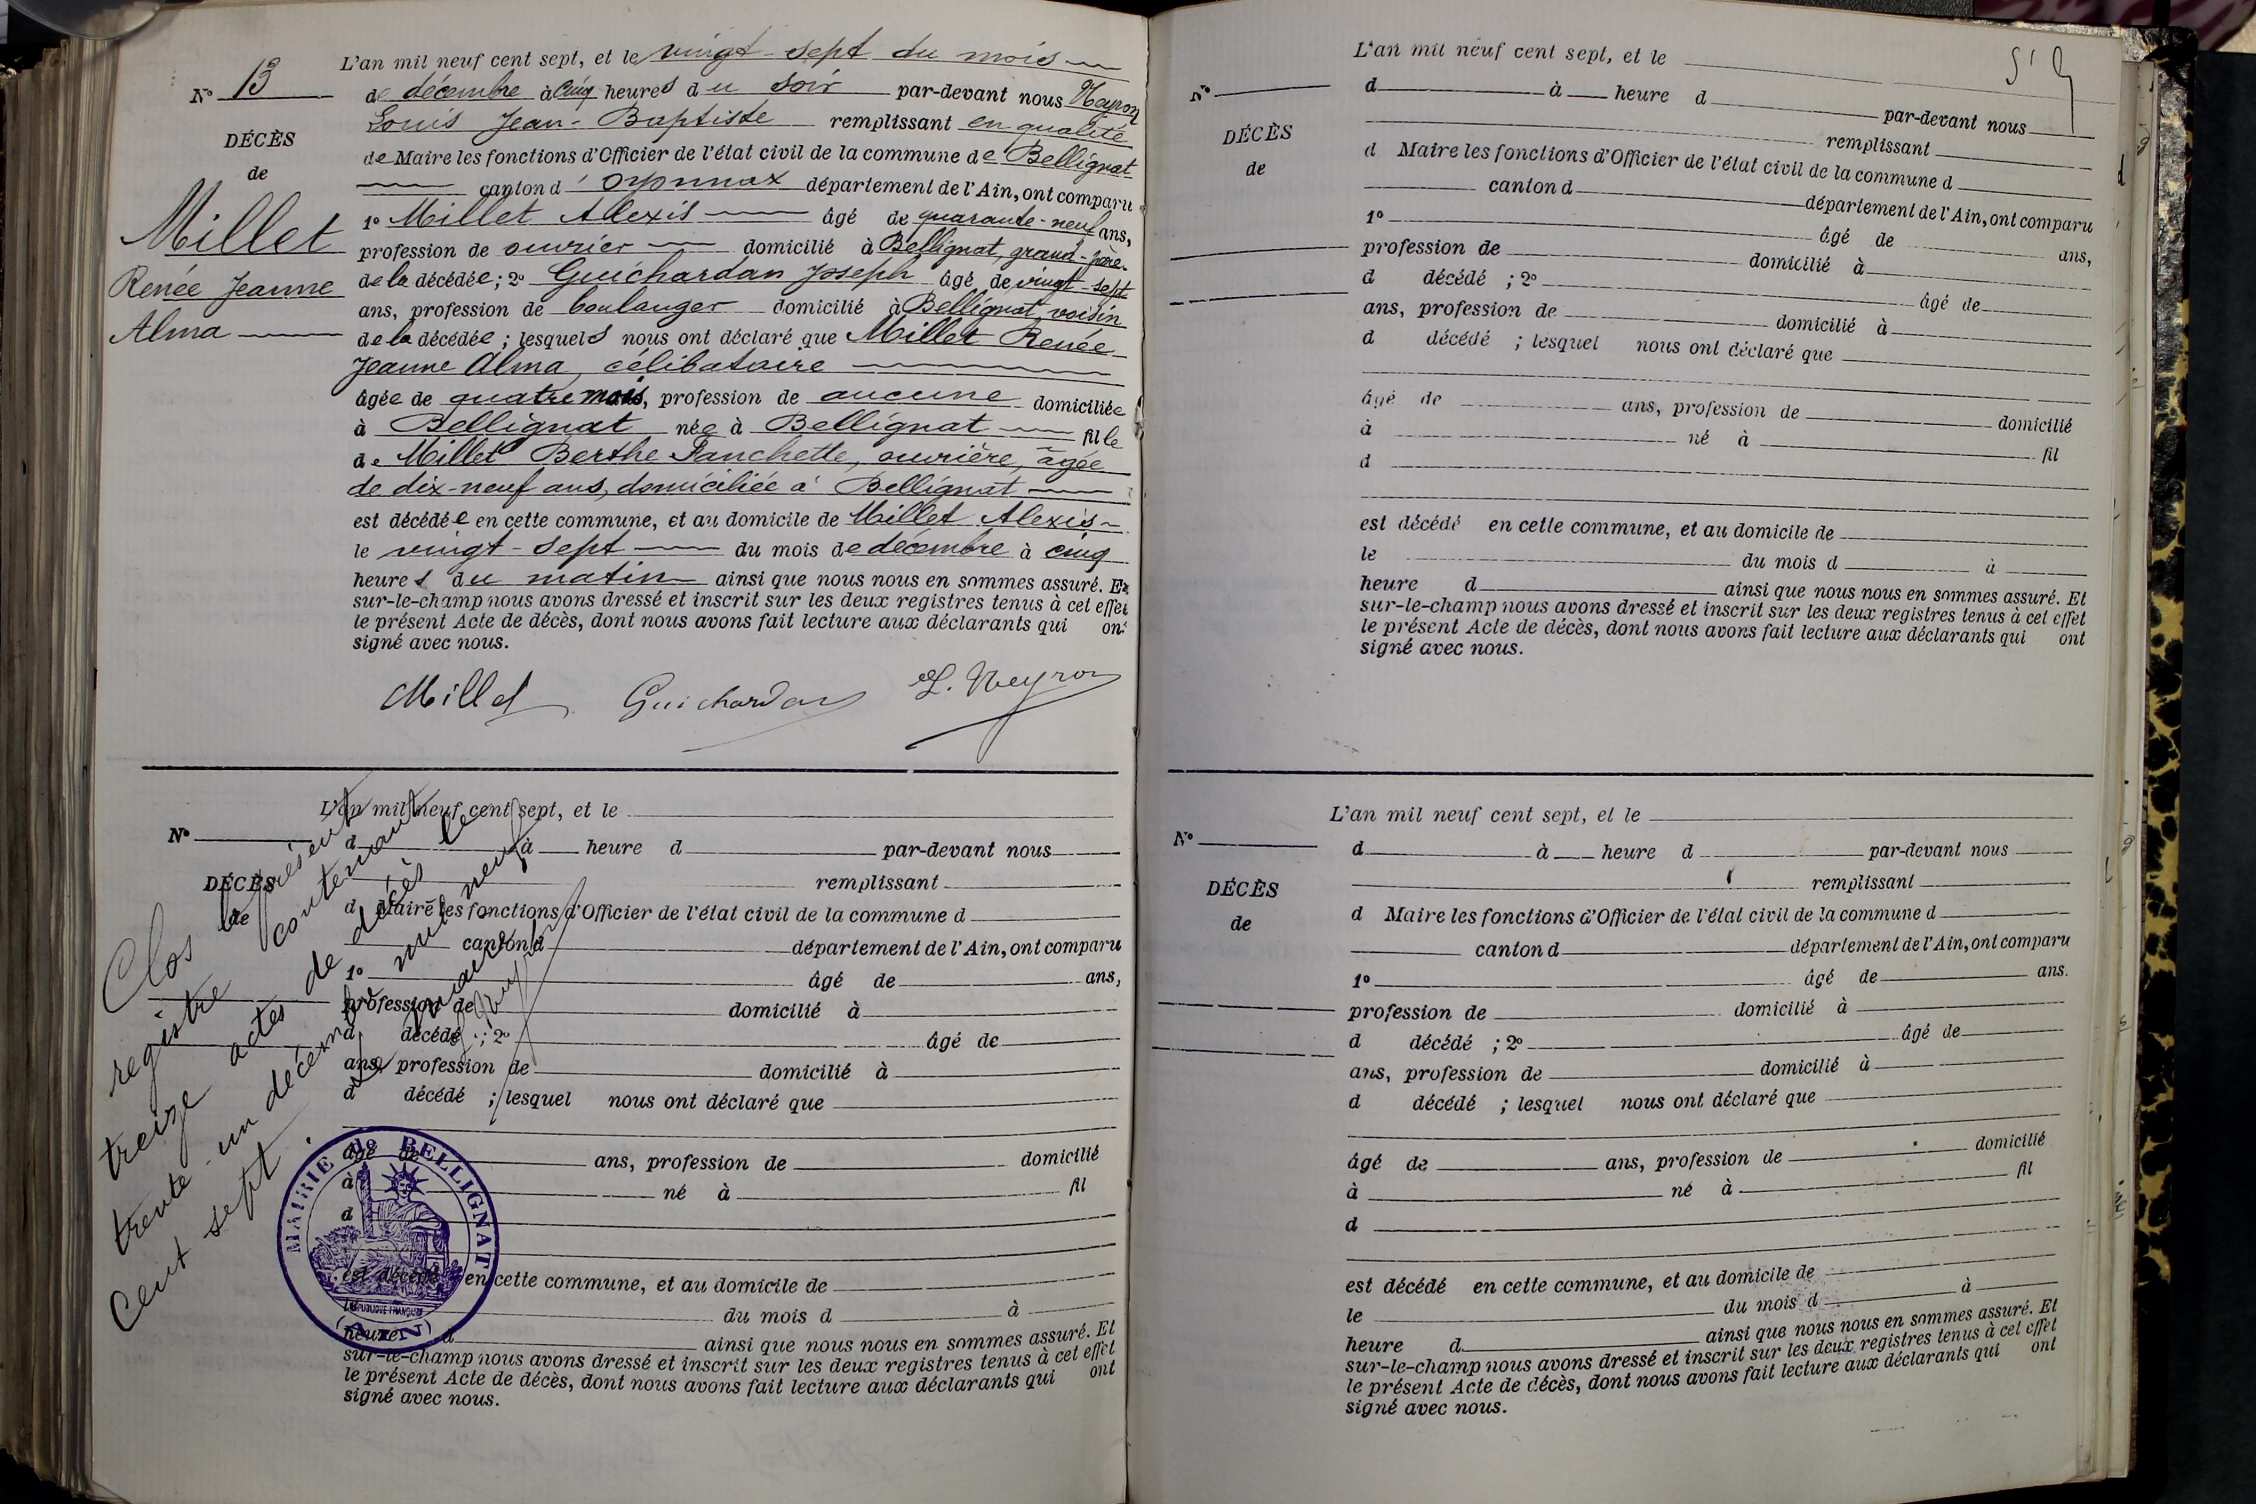 L'an mil neuf cent sept, et le vingt-sept du mois
No 13
de décembre à cinq heures du soir par-devant nous Neyron
Louis Jean-Baptiste remplissant en qualité
DÉCÈS
de Maire les fonctions d'Officier de l'état civil de la commune de Bellignat
de
canton d'Oyonnax département de l'Ain, ont comparu
1o Millet Alexis âgé de quarante-neuf ans,
Millet
profession de ouvrier domicilié à Bellignat, grand-père
Renée Jeanne
de la décédée; 2o Guichardan Joseph âgé de vingt-sept
ans, profession de boulanger domicilié à Bellignat, voisin
Alma
de la décédée; lesquels nous ont déclaré que Millet Renée
Jeanne Alma, célibataire
âgée de quatre mois, profession de aucune domiciliée
à Bellignat née à Bellignat fille
de Millet Berthe Fanchette, ouvrière, âgée
de dix-neuf ans, domiciliée à Bellignat
est décédée en cette commune, et au domicile de Millet Alexis
le vingt-sept du mois de décembre à cinq
heures du matin ainsi que nous nous en sommes assuré. Et
sur-le-champ nous avons dressé et inscrit sur les deux registres tenus à cet effet
le présent Acte de décès, dont nous avons fait lecture aux déclarants qui ont
signé avec nous.
Millet Guichardan L. Neyron
L'an mil neuf cent sept, et le
No
d à heure d par-devant nous
remplissant
DÉCÈS
d Maire les fonctions d'Officier de l'état civil de la commune d
de
canton d département de l'Ain, ont comparu
1o âgé de ans,
profession de domicilié à
d décédé ; 2o âgé de
ans, profession de domicilié à
d décédé ; lesquel nous ont déclaré que
âgé de ans, profession de domicilié
à né à fil
d
est décédé en cette commune, et au domicile de
le du mois d à
heure d ainsi que nous nous en sommes assuré. Et
sur-le-champ nous avons dressé et inscrit sur les deux registres tenus à cet effet
le présent Acte de décès, dont nous avons fait lecture aux déclarants qui ont
signé avec nous.
Clos le présent
registre contenant
treize actes de décès le
trente-un décembre mil neuf
cent sept.
Le maire
MAIRIE de BELLIGNAT
RÉPUBLIQUE FRANÇAISE
(AIN)
L'an mil neuf cent sept, et le
No
d à heure d par-devant nous
remplissant
DÉCÈS
d Maire les fonctions d'Officier de l'état civil de la commune d
de
canton d département de l'Ain, ont comparu
1o âgé de ans,
profession de domicilié à
d décédé ; 2o âgé de
ans, profession de domicilié à
d décédé ; lesquel nous ont déclaré que
âgé de ans, profession de domicilié
à né à fil
d
est décédé en cette commune, et au domicile de
le du mois d à
heure d ainsi que nous nous en sommes assuré. Et
sur-le-champ nous avons dressé et inscrit sur les deux registres tenus à cet effet
le présent Acte de décès, dont nous avons fait lecture aux déclarants qui ont
signé avec nous.
L'an mil neuf cent sept, et le
No
d à heure d par-devant nous
remplissant
DÉCÈS
d Maire les fonctions d'Officier de l'état civil de la commune d
de
canton d département de l'Ain, ont comparu
1o âgé de ans.
profession de domicilié à
d décédé ; 2o âgé de
ans, profession de domicilié à
d décédé ; lesquel nous ont déclaré que
âgé de ans, profession de domicilié
à né à fil
d
est décédé en cette commune, et au domicile de
le du mois d à
heure d ainsi que nous nous en sommes assuré. Et
sur-le-champ nous avons dressé et inscrit sur les deux registres tenus à cet effet
le présent Acte de décès, dont nous avons fait lecture aux déclarants qui ont
signé avec nous.